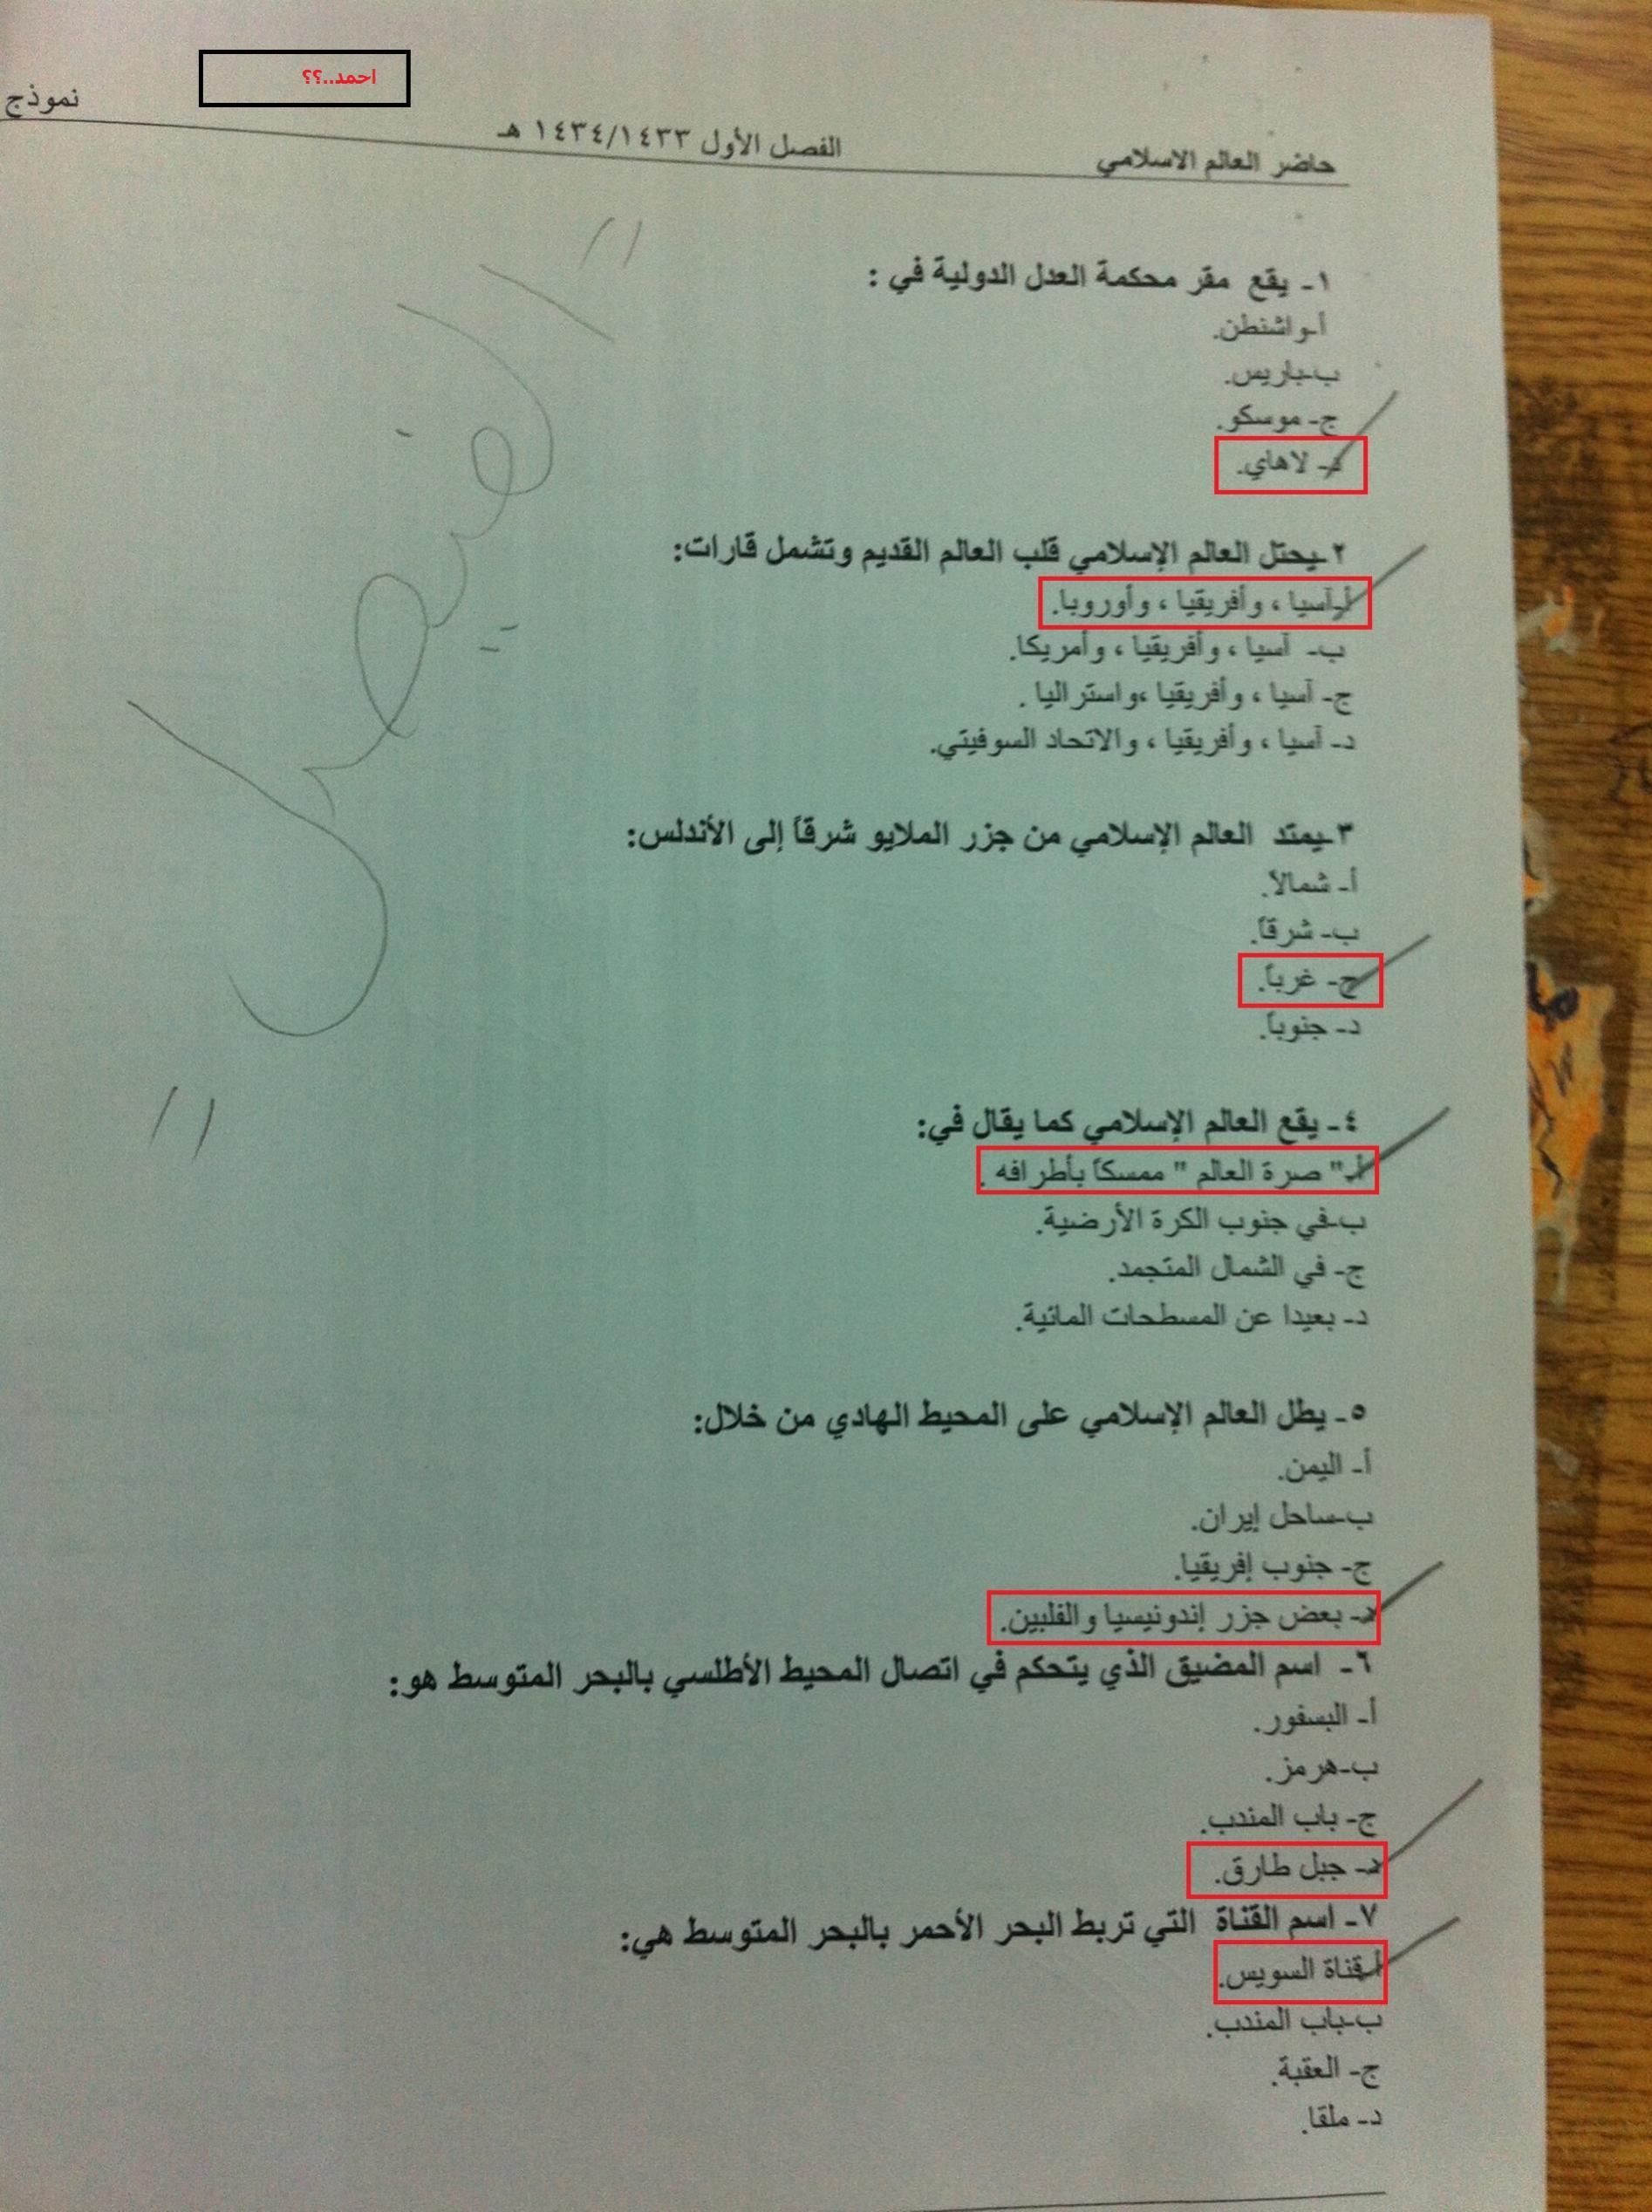 احمد..؟؟
حاضر العالم الاسلامي الفصل الأول ١٤٣٤/١٤٣٣ هـ نموذج
١- يقع مقر محكمة العدل الدولية في :
أ-واشنطن.
ب-باريس.
ج- موسكو.
د- لاهاي.
٢-يحتل العالم الإسلامي قلب العالم القديم وتشمل قارات:
أ-آسيا ، وأفريقيا ، وأوروبا.
ب- آسيا ، وأفريقيا ، وأمريكا.
ج- آسيا ، وأفريقيا ،واستراليا .
د- آسيا ، وأفريقيا ، والاتحاد السوفيتي.
٣-يمتد العالم الإسلامي من جزر الملايو شرقاً إلى الأندلس:
أ- شمالاً.
ب- شرقاً.
ج- غرباً.
د- جنوباً.
٤- يقع العالم الإسلامي كما يقال في:
أ-" صرة العالم " ممسكاً بأطرافه .
ب-في جنوب الكرة الأرضية.
ج- في الشمال المتجمد.
د- بعيدا عن المسطحات المائية.
٥- يطل العالم الإسلامي على المحيط الهادي من خلال:
أ- اليمن.
ب-ساحل إيران.
ج- جنوب إفريقيا.
د- بعض جزر إندونيسيا والفلبين.
٦- اسم المضيق الذي يتحكم في اتصال المحيط الأطلسي بالبحر المتوسط هو:
أ- البسفور.
ب-هرمز.
ج- باب المندب.
د- جبل طارق.
٧- اسم القناة التي تربط البحر الأحمر بالبحر المتوسط هي:
أ-قناة السويس.
ب-باب المندب.
ج- العقبة.
د- ملقا.